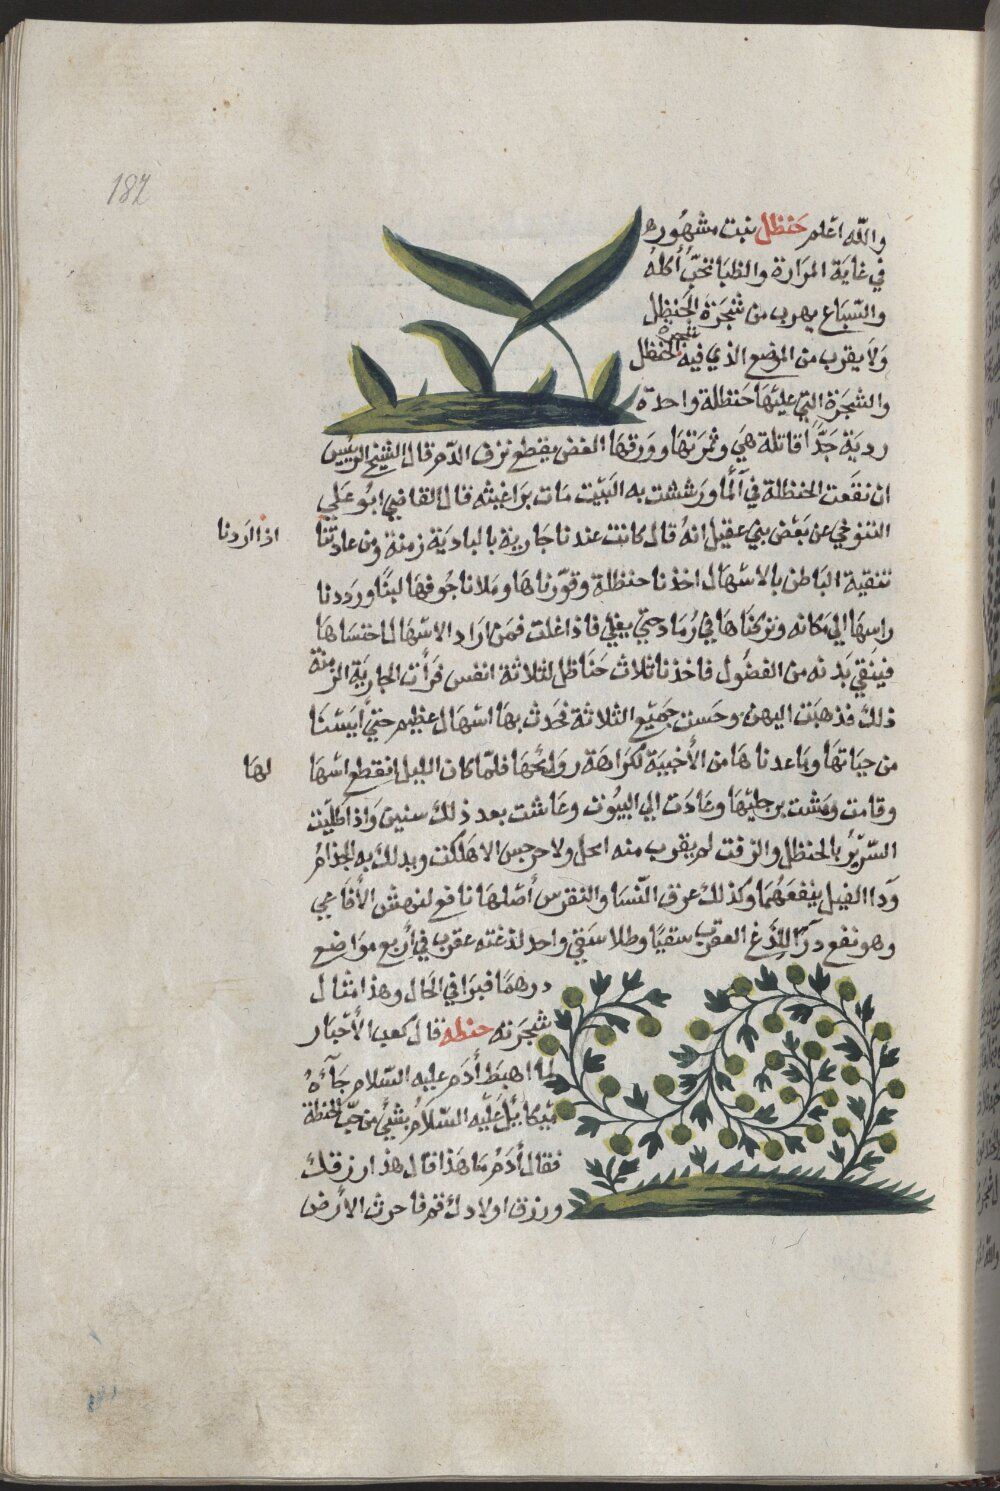 182
والله اعلم حنظل نبت مشهوره
في غاية المرارة والظبا تحب أكله
والسباع يهرب من شجرة الحنظل
ولا يقرب من الموضع الذي فيه شجرة الحنظل
والشجرة التي عليها حنظلة واحدة
ردية جدًا قاتلة هي وثمرتها وورقها الغض يقطع نزف الدم قال الشيخ الرييس
ان نقعت الحنظلة في آلما ورششت به البيت مات براغيثه قال القاضي ابو علي
التنوخي عن بعض بني عقيل انه قال كانت عندنا جارية بالبادية زمنة ومن عادتنا
اذا اردنا
تنقية الباطن بالاسهال اخذنا حنظلة وقورناها وملانا جوفها لبنًا ورددنا
راسها الي مكانه وتركناها في رماد حتي يغلي فاذا غلت فمن اراد الاسهال احتساها
فينقي بدنه من الفضول فاخذنا ثلاث حناظل لثلاثة انفس فرأت الجارية الزمنة
ذلك فذهبت اليهن وحست جميع الثلاثة فحدث بها اسهال عظيم حتي أيسنا
من حياتها وباعدناها من الأخبية لكراهة روايحها فلما كان الليل انقطع اسها
لها
وقامت ومشت برجليها وعادت الي البيوت وعاشت بعد ذلك سنين واذا طليت
السرير بالحنظل والزفت لم يقرب منه احل ولا جرجس الا هلكت ويدلك به الجذام
ودا الفيل ينفعهما وكذلك عرق النسا والنقرس أصلها نافع لنهش الأفاعي
وهو نفع درآ للدغ العقرب سقيًا وطلا سقي واحد لدغته عقرب في أربع مواضع
درهما فبرا في الحال وهذا مثال
شجرته حنطه قال كعب الأحبار
لما اهبط أدم عليه السلام جآءه
ميكاييل عليه السلام بشيء من حب الحنطة
فقال أدم ما هذا قال هذا رزقك
ورزق اولادك قم فاحرث الأرض